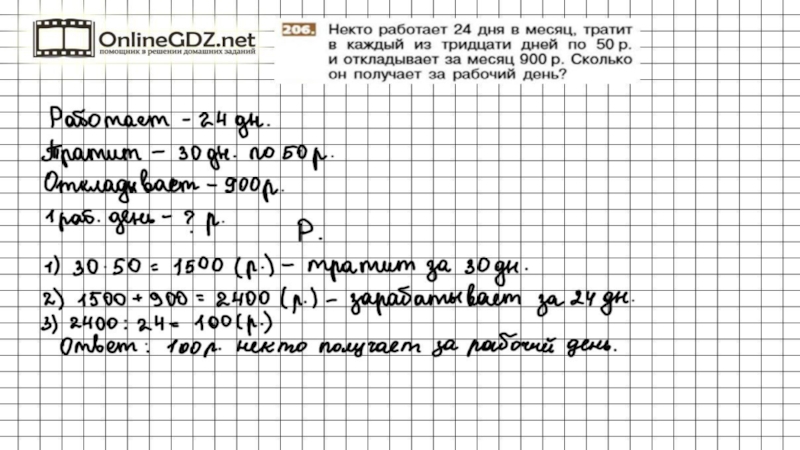 OnlineGDZ.net
помощник в решении домашних заданий
206. Некто работает 24 дня в месяц, тратит
в каждый из тридцати дней по 50 р.
и откладывает за месяц 900 р. Сколько
он получает за рабочий день?
Работает - 24 дн.
Тратит - 30 дн. по 50 р.
Откладывает - 900 р.
1 раб. день - ? р.
Р.
1) 30 · 50 = 1500 (р.) - тратит за 30 дн.
2) 1500 + 900 = 2400 (р.) - зарабатывает за 24 дн.
3) 2400 : 24 = 100 (р.)
Ответ: 100 р. некто получает за рабочий день.